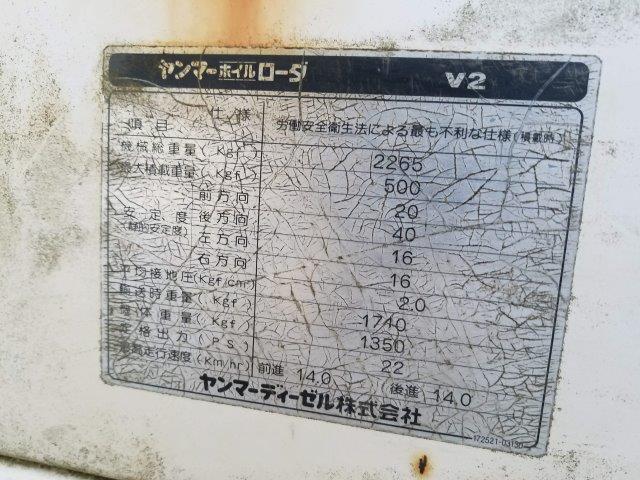 ヤンマーホイルローダ V2
項目 仕様 労働安全衛生法による最も不利な仕様(積載時)
機械総重量(Kgf) 2265
最大積載重量(Kgf) 500
安定度(静的安定度) 前方向 20
後方向 40
左方向 16
右方向 16
平均接地圧(Kgf/cm²) 2.0
輸送時重量(Kgf) 1740
機体重量(Kgf) 1350
定格出力(PS) 22
最高走行速度(Km/hr) 前進 14.0 後進 14.0
ヤンマーディーゼル株式会社
172521-03130